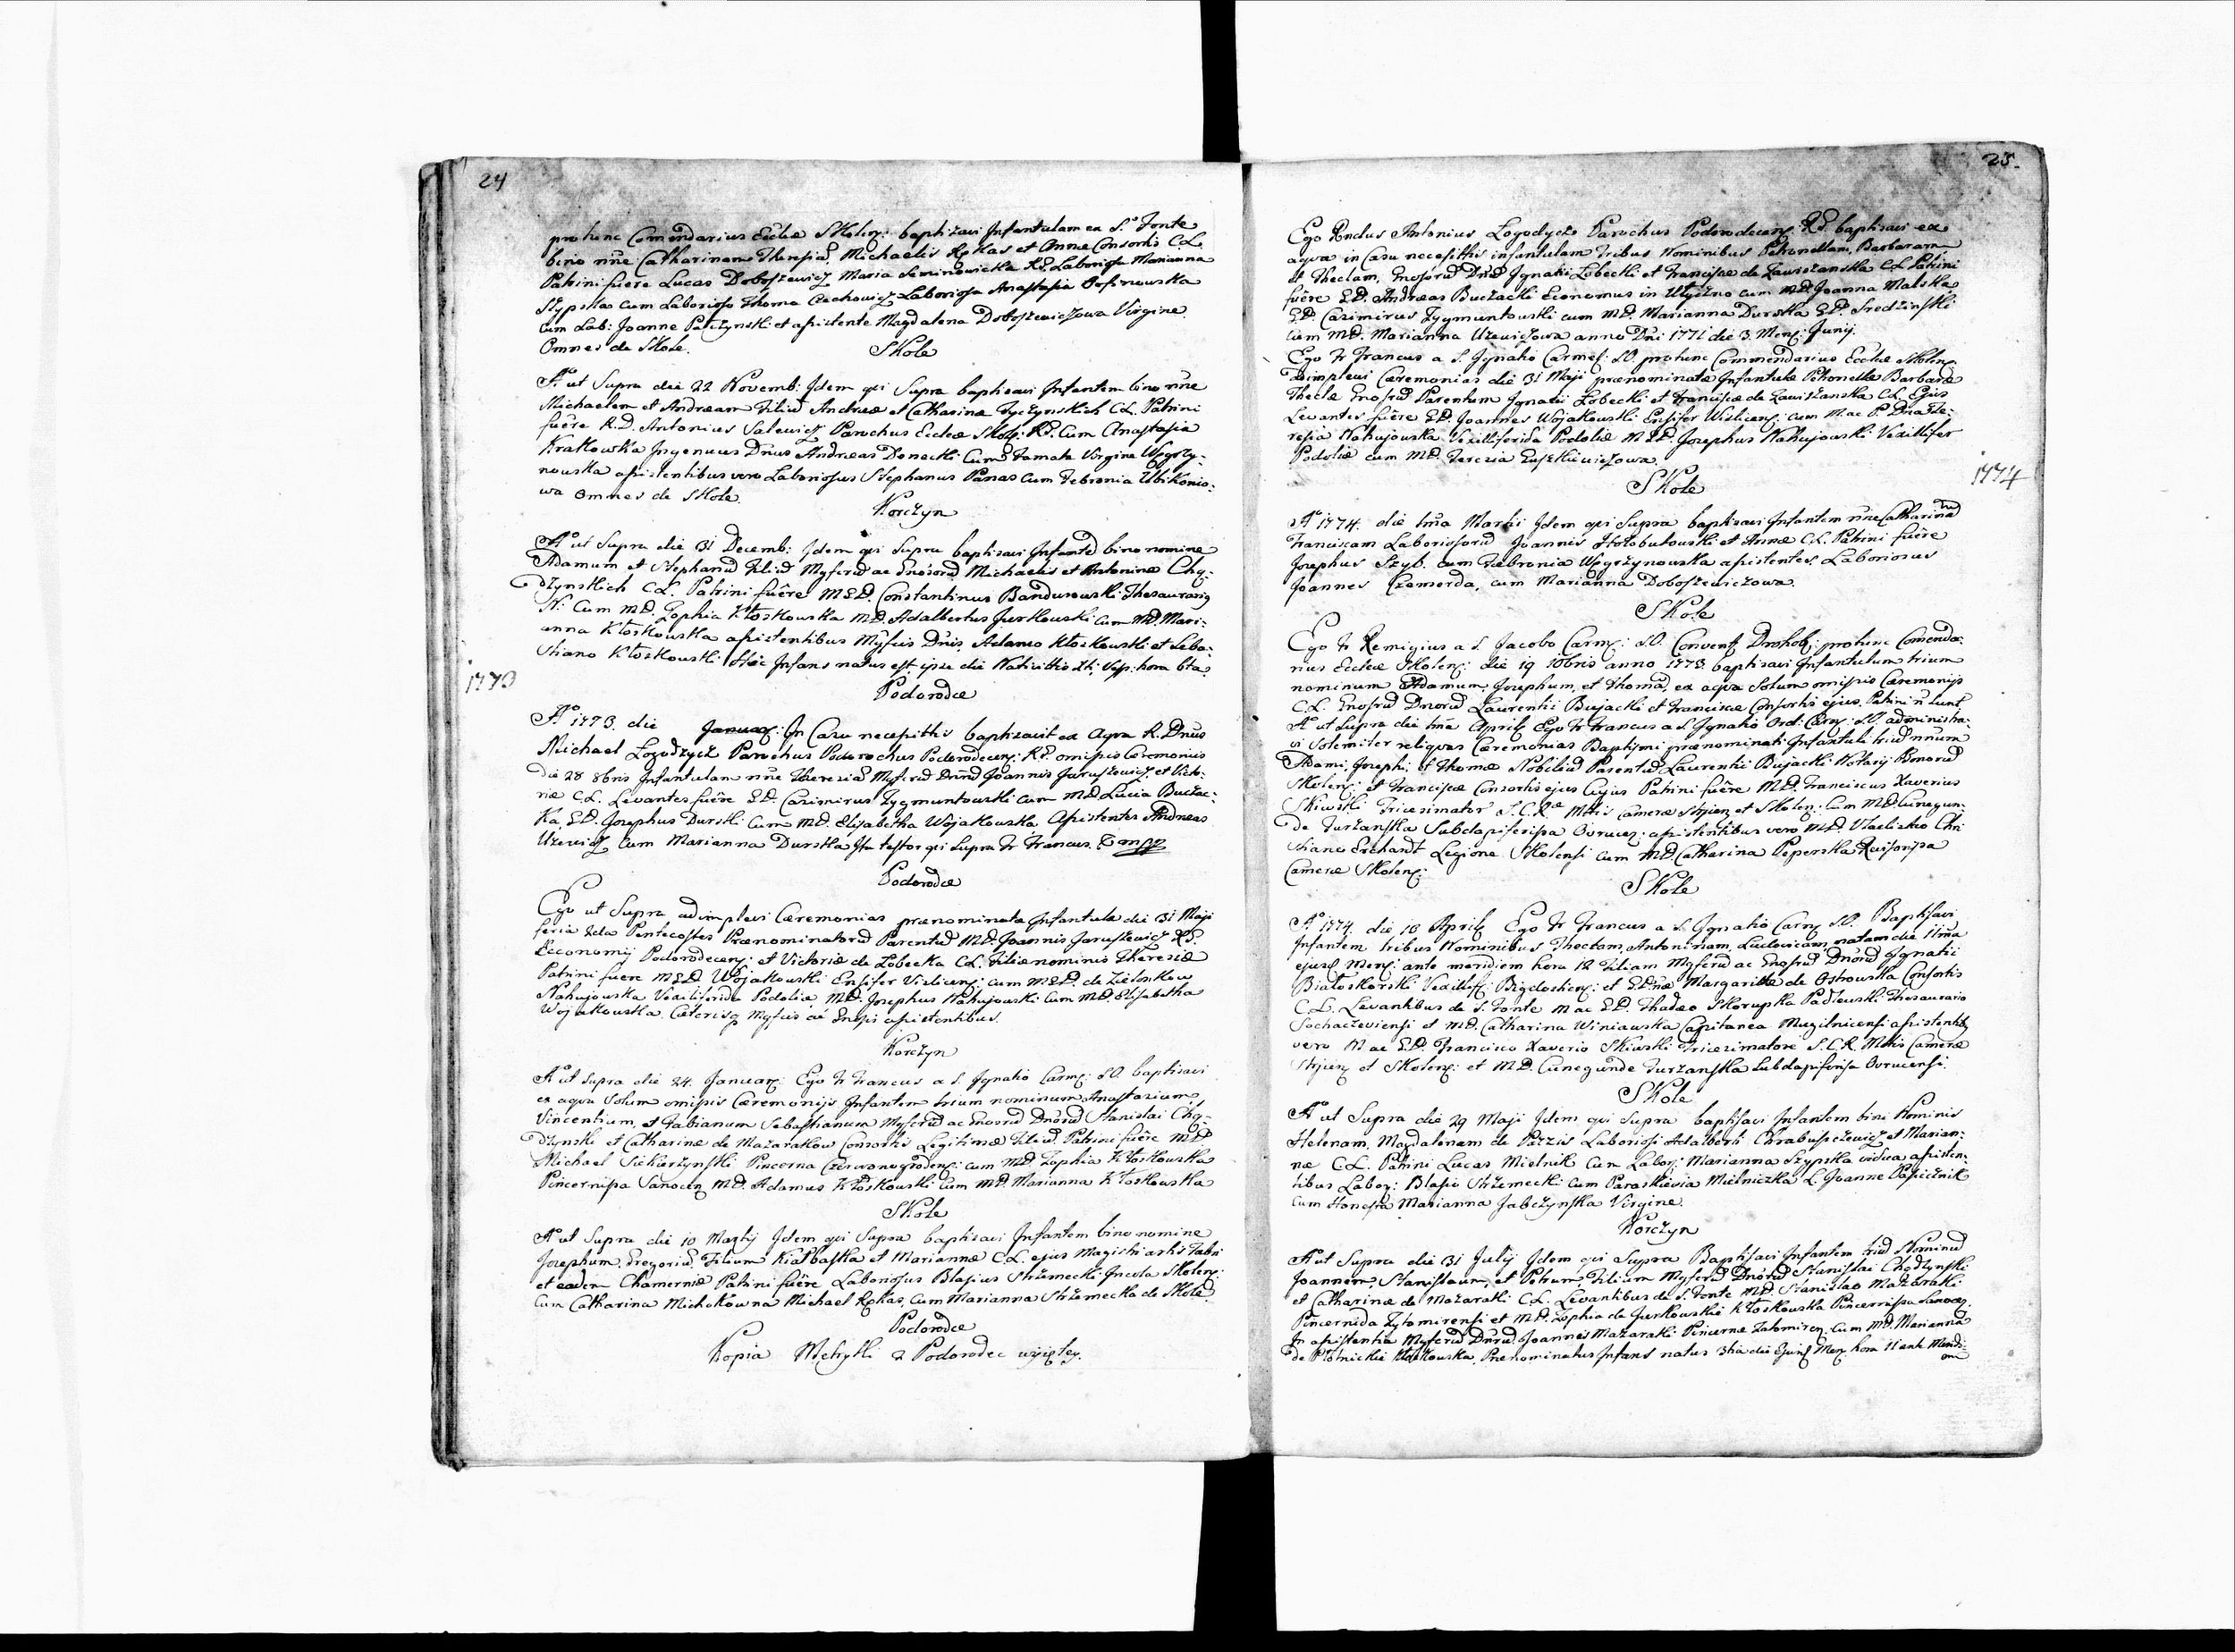 24
pro tunc Comendarius Eccliæ Skolen: baptizavi Infantulam ex S. Fonte
bino nñe Catharinam Theresiã Michaelis Rękas et Annæ Consortis C.L.
Patrini fuere Lucas Doboszewicz Maria Seminowicka Laboriosa Marianna
Szypska cum Laborioso Thoma Czechowicz Laboriosa Anastasia
cum Lab: Joanne Patczynski et assistente Magdalena Doboszewiczowa Virgine
Omnes de Skole.
Skole
Aº ut Supra die 22 Novemb: Idem qui Supra baptisavi Infantem bino nñe
Michaelem et Andream Filiũ Andreæ et Catharinæ Tyczynskich C.L. Patrini
fuêre R.D. Antonius Salewicz Parochus Eccliæ Skol: cum Anastasia
Krakowska Ingenuus Dnus Andreas Donecki cum Famata Virgine Węgrzy-
nowska assistentibus vero Laboriosus Stephanus Panas cum Febronia
wa Omnes de Skole.
Korczyn
Aº ut Supra die 31 Decemb: Idem qui Supra baptisavi Infantẽ bino nomine
Adamum et Stephanũ Filiũ Mgfcorũ ac Gnosorũ Michaelis et Antoninæ Chą-
dzynskich C.L. Patrini fuêre M.G.D. Constantinus Bandurowski Thesaurariq
N: cum M.D. Zophia Kłoskowska M.D. Adalbertus Jurkowski cum M.D. Mari-
anna Kłoskowska assistentibus Mgfcis Dnis Adamo Kłoskowski et Seba-
stiano Kłoskowski Hic Infans natus est ipsa die Nativittis Xti: Vesp: hora 6ta
1773
Podorodce
Aº 1773. die Januar: In Casu necessittis baptisavit ex Aqva R. Dnus
Michael Łogodzycz Parochus Podorochus Podorodecen: omissis Ceremoniis
die 28 8bris Infantulam nñe Theresiã Mgfcorũ Dnorũ Joannis Jaruszewicz et Victo-
riæ C.L. Levantes fuêre G.D. Casimirus Zygmuntowski cum M.D. Lucia Buczac-
ka, G.D. Josephus Durski cum M.D. Elisabetha Wojakowska. Assistentes Andreas
Uzewicz cum Marianna Durska Ita testor qui Supra Fr Francus.
Podorodce
Ego ut Supra adimplevi Cæremonias prænominatæ Infantulæ die 31 Maji
feria 2da Pentecostes Prænominatorũ Parentũ M.D. Joannis Jaruszewicz
Œconomij Podorodecen: et Victoriæ de Łobecka C.L. Filiæ nominis Theresiæ
Patrini fuere M.G.D. Wojakowski Ensifer Vislicen: cum M.G.D. de Zielonkow
Nahujowska Vexiliferida Podoliæ M.D. Josephus Nahujowski cum M.D. Elisabetha
Wojakowska. Cæterisq Mgfcis ac Gnosis assistentibus.
Korczyn
Aº ut Supra die 24. Januar: Ego Fr Francus a S. Ignatio Carm: S.O. baptisavi
ex aqva Solum omissis Cæremonijs Infantem trium nominum Anastasium,
Vincentium, et Fabianum Sebastianum Mgfcorũ ac Gnosorũ Dnorũ Stanislai Chą-
dzynski et Catharinæ de Mazarakow Consortis Legitimæ Filiũ. Patrini fuêre M.D.
Michael Siekierzynski Pincerna Czerwonogroden: cum M.D. Zophia Kłoskowska
Pincernissa Sanocen M.D. Adamus Kłoskowski cum M.D. Marianna Kłoskowska
Skole
Aº ut Supra die 10 Martij Idem qui Supra baptisavi Infantem bino nomine
Josephum, Gregoriũ. Filium Kiałbaska et Mariannæ C.L. ejus Magistri artis Fabri
et eadem Chamerniæ Patrini fuêre Laboriosus Blasius Strzemecki Incola Skolen:
cum Catharina Michokówna Michael Rękas, cum Marianna Strzemecka de Skole
Podorodce
Kopia Metryki z Podorodec wyjętey.
25.
Ego Rndus Antonius Łogodycz Parochus Podorodecen: baptisavi ex
aqva in Casu necessittis infantulam tribus Nominibus Petronellam, Barbaram
et Theclam, Gnosorũ Dnorũ Ignatii Łobecki et Franciscæ de Zawiszanska C.L. Patrini
fuêre G.D. Andreas Buczacki Economus in Utyczno cum M.D. Joanna Malska
G.D. Casimirus Zygmuntowski cum M.D. Marianna Durska G.D. Sredzinski
cum M.D. Marianna Uzewiczowa anno Dni 1771 die 3. Mens: Junij.
Ego Fr Francus a S. Ignatio Carmel: S.O. pro tunc Commendarius Eccliæ Skolen:
adimplevi Cæremonias die 31 Maji prænominatæ Infantulæ Petronellæ Barbaræ
Theclæ Gnosorũ Parentum Ignatii Łobecki et Franciscæ de Zawiszanska C.L. Ejus
Levantes fuêre G.D. Joannes Wojakowski Ensifer Wislicen: cum M. ac P. Dna The-
resia Nahujowska Vexilliferida Podoliæ M.G.D. Josephus Nahujowski Vexillifer
Podoliæ cum M.D. Terezia
1774
Skole
Aº 1774. die 1ma Martii Idem qui Supra baptisavi Infantem nñe Catharinã
Franciscam Laboriosorũ Joannis Hołobutowski et Annæ C.L. Patrini fuêre
Josephus Szyb. cum Febronia Węgrzynowska assistentes, Laboriosus
Joannes Czemerda, cum Marianna Doboszewiczowa.
Skole
Ego Fr Remigius a S. Jacobo Carm: S.O. Convent: Drohob: protunc Comenda-
rius Eccliæ Skolen: die 19 10bris anno 1773. baptisavi Infantulum trium
nominum Adamum, Josephum, et Thomã, ex aqva Solum omissis Cæremonijs
C.L. Gnosorũ Dnorũ Laurentii Bujacki et Franciscæ Consortis ejus, Patrini ñ sunt
Aº ut Supra die 1ma April: Ego Fr Francus a S. Ignatio Ord: Carm: S.O. administra-
vi Solemiter reliqvas Cæremonias Baptismi prænominati Infantuli triũ nnum
Adami, Josephi, et Thomæ Nobiliũ Parentũ Laurentii Bujacki Notarij Bonorũ
Skolen: et Franciscæ Consortis ejus Cujus Patrini fuêre M.D. Franciscus Xaverius
Skiwski Tricesimator S.C.R.æ Mttis Cameræ Stryien et Skolen: cum M.D. Cunegun-
de Turzanska Subdapiferissa Ovrucen: assistentibus vero M.D. Chri
stiano Erchardt Legione Skolensi cum M.D. Catharina Peperska Revisorissa
Cameræ Skolen:
Skole
Aº 1774 die 10 April: Ego Fr Francus a S. Ignatio Carm S.O. Baptisavi
Infantem tribus Nominibus Theclam, Antoninam, Ludovicam natam die 11ma
ejusd Mens: ante meridiem hora 12 Filiam Mgfcorũ ac Gnosorũ Dnorũ Ignatii
Białoskorski Vexilliferi et Margarittæ de Ostrowska Consortis
C.L. Levantibus de S. Fonte M ac G.D. Thadeo Skorupka Padlewski Thesaurario
Sochaczeviensi et M.D. Catharina Winiawska Capitanea assistentib
vero M ac G.D. Francisco Xaverio Skiwski Tricezimatore S.C.R. Mttis Cameræ
Stryien et Skolen: et M.D. Cunegunde Turzanska Subdapiferissa Ovrucensi.
Skole
Aº ut Supra die 29 Maji Idem qui Supra baptisavi Infantem bini Nominis
Helenam, Magdalenam de Pazzis Laboriosi Adalberti et Marian-
næ C.L. Patrini Lucas Mielnik cum Labor: Marianna Szypska vidua assisten-
tibus Labor: Blasio Strzemecki cum Paraskievia Mielniczka L. Joanne Papiecznik
cum Honesta Marianna Jabczynska Virgine.
Korczyn
Aº ut Supra die 31 Julij Idem qui Supra Baptisavi Infantem triũ Nominũ
Joannem, Stanislaum, et Petrum, Filium Mgfcorũ Dnorũ Stanislai Chądzynski
et Catharinæ de Mazaraki C.L. Levantibus de S. Fonte M.D. Stanislao Mazaraki
Pincernida Zytomirensi et M.D. Zophia de Jurkowskie Kłoskowska Pincernissa Sanocen.
In assistentia Mgfcorũ Dnorũ Joannis Mazaraki Pincernæ Zytomiren: cum M.D. Marianna
de Płotnickie Kłoskowska, Prænominatus Infans natus 3tia die Ejusd Mens. hora 11 ante Meridi-
em